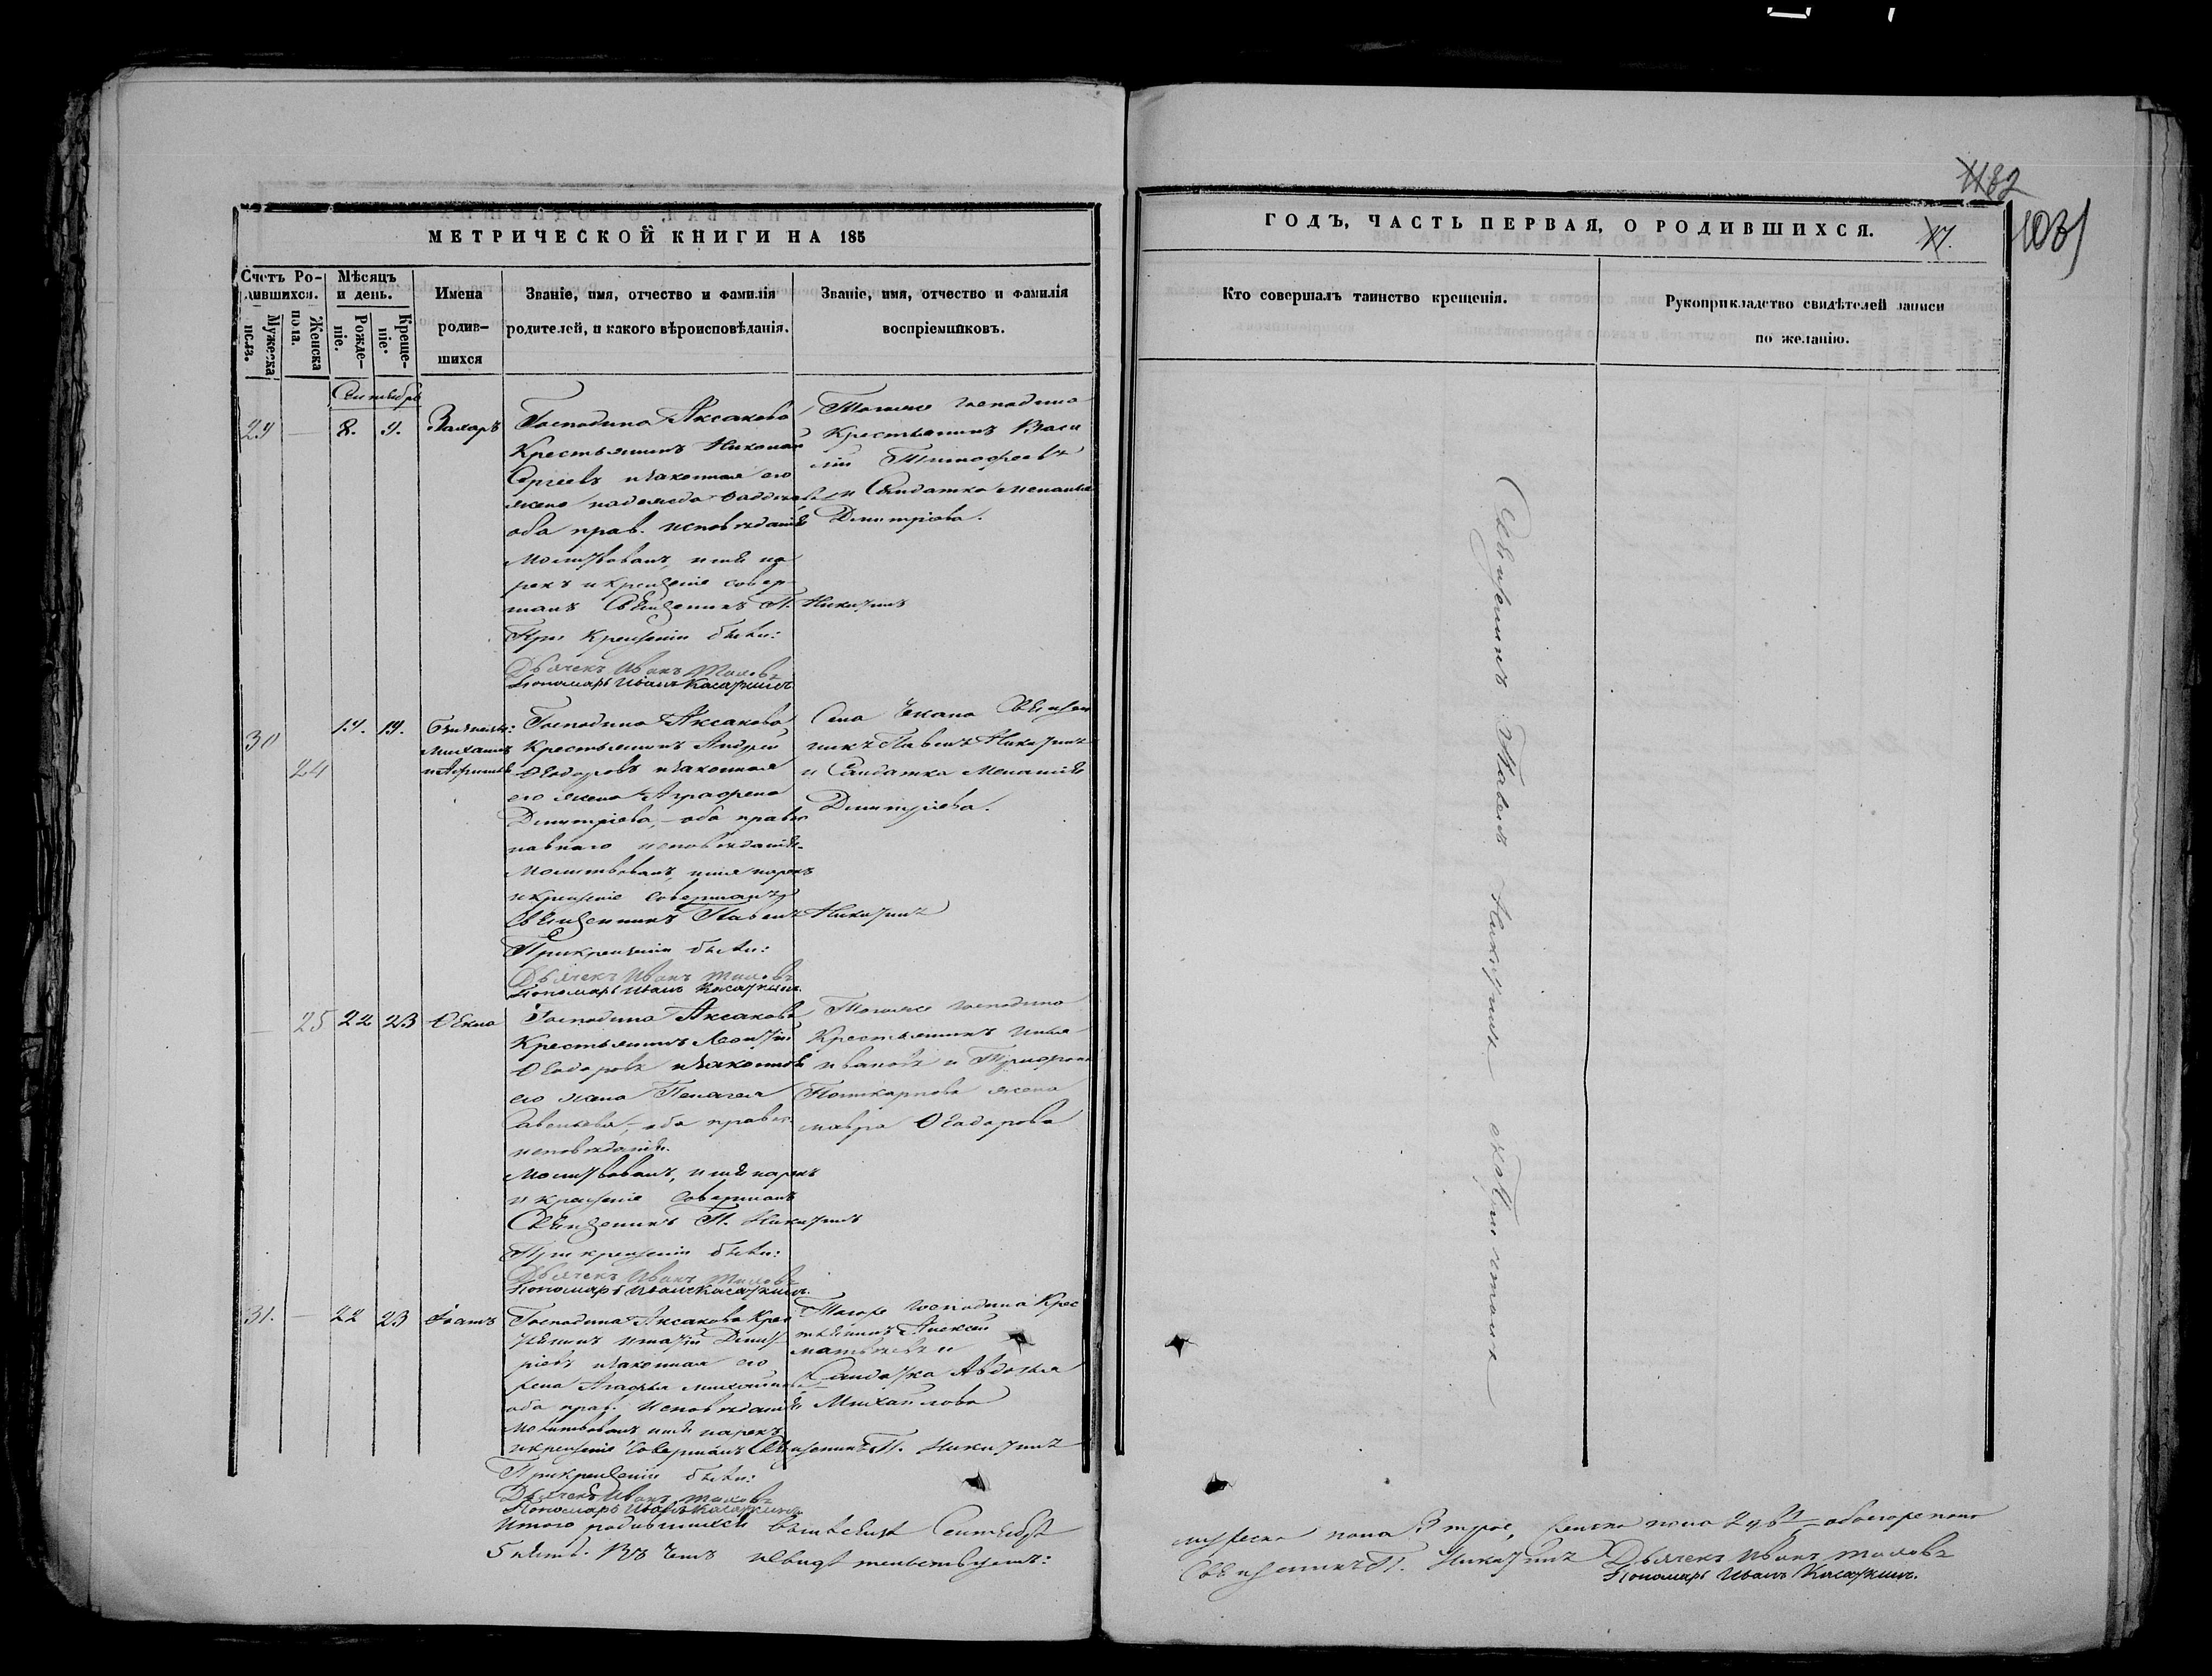 МЕТРИЧЕСКОЙ КНИГИ НА 185
Счетъ Ро-
дившихся.
Мужеска
пола.
Женска
пола.
Мѣсяцъ
и день.
Рожде-
ніе.
Креще-
ніе.
Имена
родив-
шихся
Званіе, имя, отчество и фамилія
родителей, и какого вѣроисповѣданія.
Званіе, имя, отчество и фамилія
воспріемниковъ.
Сентябрь
29 — 8. 9. Захаръ
Господина Аксакова
Крестьянинъ Николай
Сергеевъ изаконная его
жена надежда Фаддеева
оба прав. исповѣданія
Молитвовалъ, имя на
рекъ икрещеніе совер
шалъ Священникъ П. Никитинъ
При крещеніи были:
Дьячекъ Иванъ
Пономарь Иванъ Касаткинъ
Тогоже господина
Крестьянинъ Васи
лій Тимофеевъ
и Салдатка меланья
Дмитріева.
30 24 19. 19. Близнецы:
михаилъ
Господина Аксакова
Крестьянинъ Андрей
Ѳеодоровъ изаконная
его жена Аграфена
Дмитріева, оба право
славнаго исповѣданія
Молитвовалъ, имя нарекъ
икрещеніе совершалъ
Священникъ Павелъ Никитинъ
Прикрещеніи были:
Дьячекъ Иванъ
Пономарь Иванъ Касаткинъ
Села Священ
никъ Павелъ Никитинъ
и Салдатка Меланія
Дмитріева.
— 25 22 23 Ѳекла
Господина Аксакова
Крестьянинъ Леонтій
Ѳеодоровъ изаконная
его жена Пелагея
Савельева, оба правос.
исповѣданія.
Молитвовалъ, имя нарекъ
и крещеніе совершалъ
Священникъ П. Никитинъ
При крещеніи были:
Дьячекъ Иванъ
Пономарь Иванъ Касаткинъ
Тогоже господина
Крестьянинъ Илья
ивановъ и Трифона
Поликарпова жена
мавра Ѳеодорова
31. — 22 23
Господина Аксакова Крес
тьянинъ Игнатій Дмит
ріевъ изаконная его
жена Агафья михайлова
оба прав. исповѣданія
Молитвовалъ имя нарекъ
икрещеніе совершалъ Священникъ П. Никитинъ
Прикрещеніи были:
Дьячекъ Иванъ
Пономарь Иванъ Касаткинъ
Тогоже господина Крес
тьянинъ Алексей
матвѣевъ и
Салдатка Авдотья
Михайлова
Итого родившихся въ Сентябрѣ
5 пять. Въ чемъ исвидѣтельствуемъ:
ГОДЪ, ЧАСТЬ ПЕРВАЯ, О РОДИВШИХСЯ.
82
103
Кто совершалъ таинство крещенія.
Рукоприкладство свидѣтелей записи
по желанію.
Священникъ Павелъ Никитинъ
мужеска пола 3 трое, женска пола 2 двѣ обоегоже пола
Священникъ П. Никитинъ
Дьячекъ Иванъ
Пономарь Иванъ Касаткинъ.